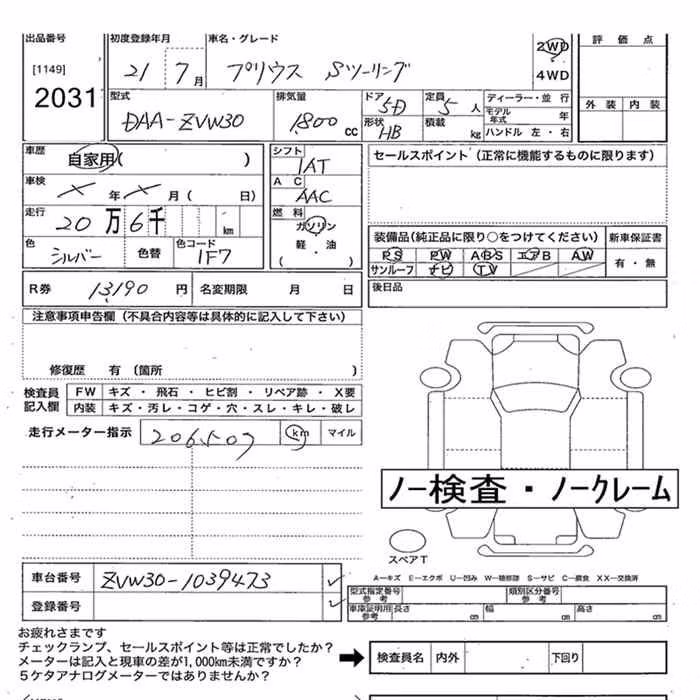 出品番号 初度登録年月 車名・グレード 2WD 評価点
[1149] 21 7月 プリウス Sツーリング 4WD
2031 型式 排気量 ドア 5D 定員 5人 ディーラー・並行 外装 内装
DAA-ZVW30 1800cc 形状 HB 積載 kg モデル年式 年
ハンドル 左・右
車歴 自家用( ) シフト IAT セールスポイント(正常に機能するものに限ります)
車検 ×年×月( 日) AC AAC
走行 20万6千 km 燃料 ガソリン 装備品(純正品に限り○をつけてください) 新車保証書
色 シルバー 色替 色コード 1F7 軽・油 ( ) PS PW ABS エアB AW 有・無
サンルーフ ナビ TV
R券 13,190円 名変期限 月 日 後日品
注意事項申告欄(不具合内容等は具体的に記入して下さい)
修復歴 有(箇所 )
検査員記入欄 FW キズ・飛石・ヒビ割・リペア跡・X要
内装 キズ・汚レ・コゲ・穴・スレ・キレ・破レ
走行メーター指示 206,507 km マイル
ノー検査・ノークレーム
スペアT
A―キズ E―エクボ U―凹み W―補修跡 S―サビ C―腐食 XX―交換済
車台番号 ZVW30-1039473 型式指定番号 参考 類別区分番号 参考
登録番号 車庫証明用 参考 長さ cm 幅 cm 高さ cm
お疲れさまです
チェックランプ、セールスポイント等は正常でしたか?
メーターは記入と現車の差が1,000km未満ですか?
5ケタアナログメーターではありませんか?
検査員名 内外 下回り